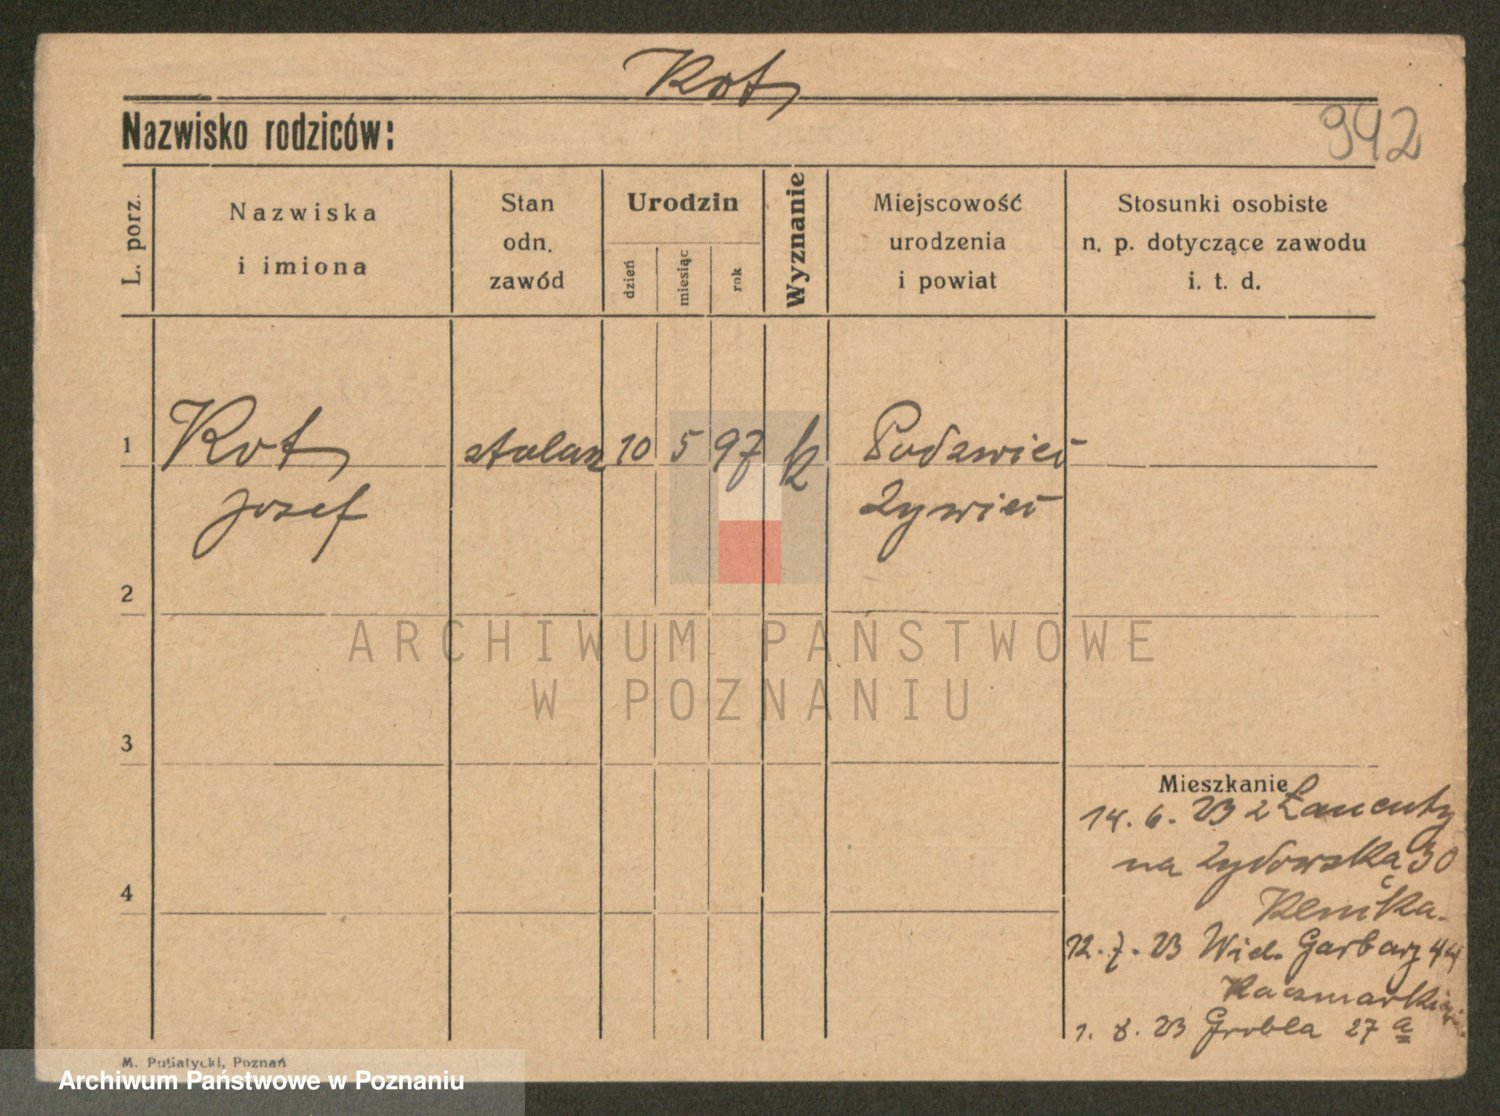 Kot
Nazwisko rodziców:
942
L. porz.
Nazwiska
i imiona
Stan
odn.
zawód
Urodzin
dzień
miesiąc
rok
Wyznanie
Miejscowość
urodzenia
i powiat
Stosunki osobiste
n. p. dotyczące zawodu
i. t. d.
1
Kot
Josef
stolarz
10
5
97
k
Żywiec
2
ARCHIWUM PAŃSTWOWE
W POZNANIU
3
Mieszkanie
14. 6. 23 z Łancuty
na Żydowską 30
4
12. 7. 23 Wiel. Garbary 44
1. 8. 23 Grobla 27 a
M. Putiatycki, Poznań
Archiwum Państwowe w Poznaniu